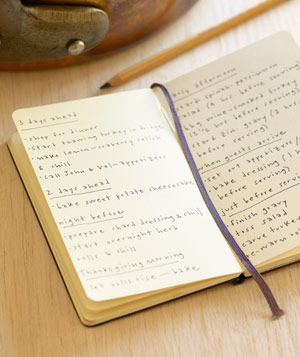 3 days ahead
· shop for dinner
· start thawing turkey in fridge
· make lemon-cranberry relish
& chill
· call John & Val-appetizers
2 days ahead
· bake sweet potato cheesecake
night before
· prepare chard dressing & chill
· start overnight herb
rolls & chill
Thanksgiving morning
let rolls rise — bake
early afternoon
start spinach-persimmon
salad (2 hrs before serving)
turkey
before serving)
start zin gravy (3 hrs
before serving)
when guests arrive
set out appetizers
bake dressing (1
before serving)
just before serving
finish gravy
toss salad
carve turkey
re-warm